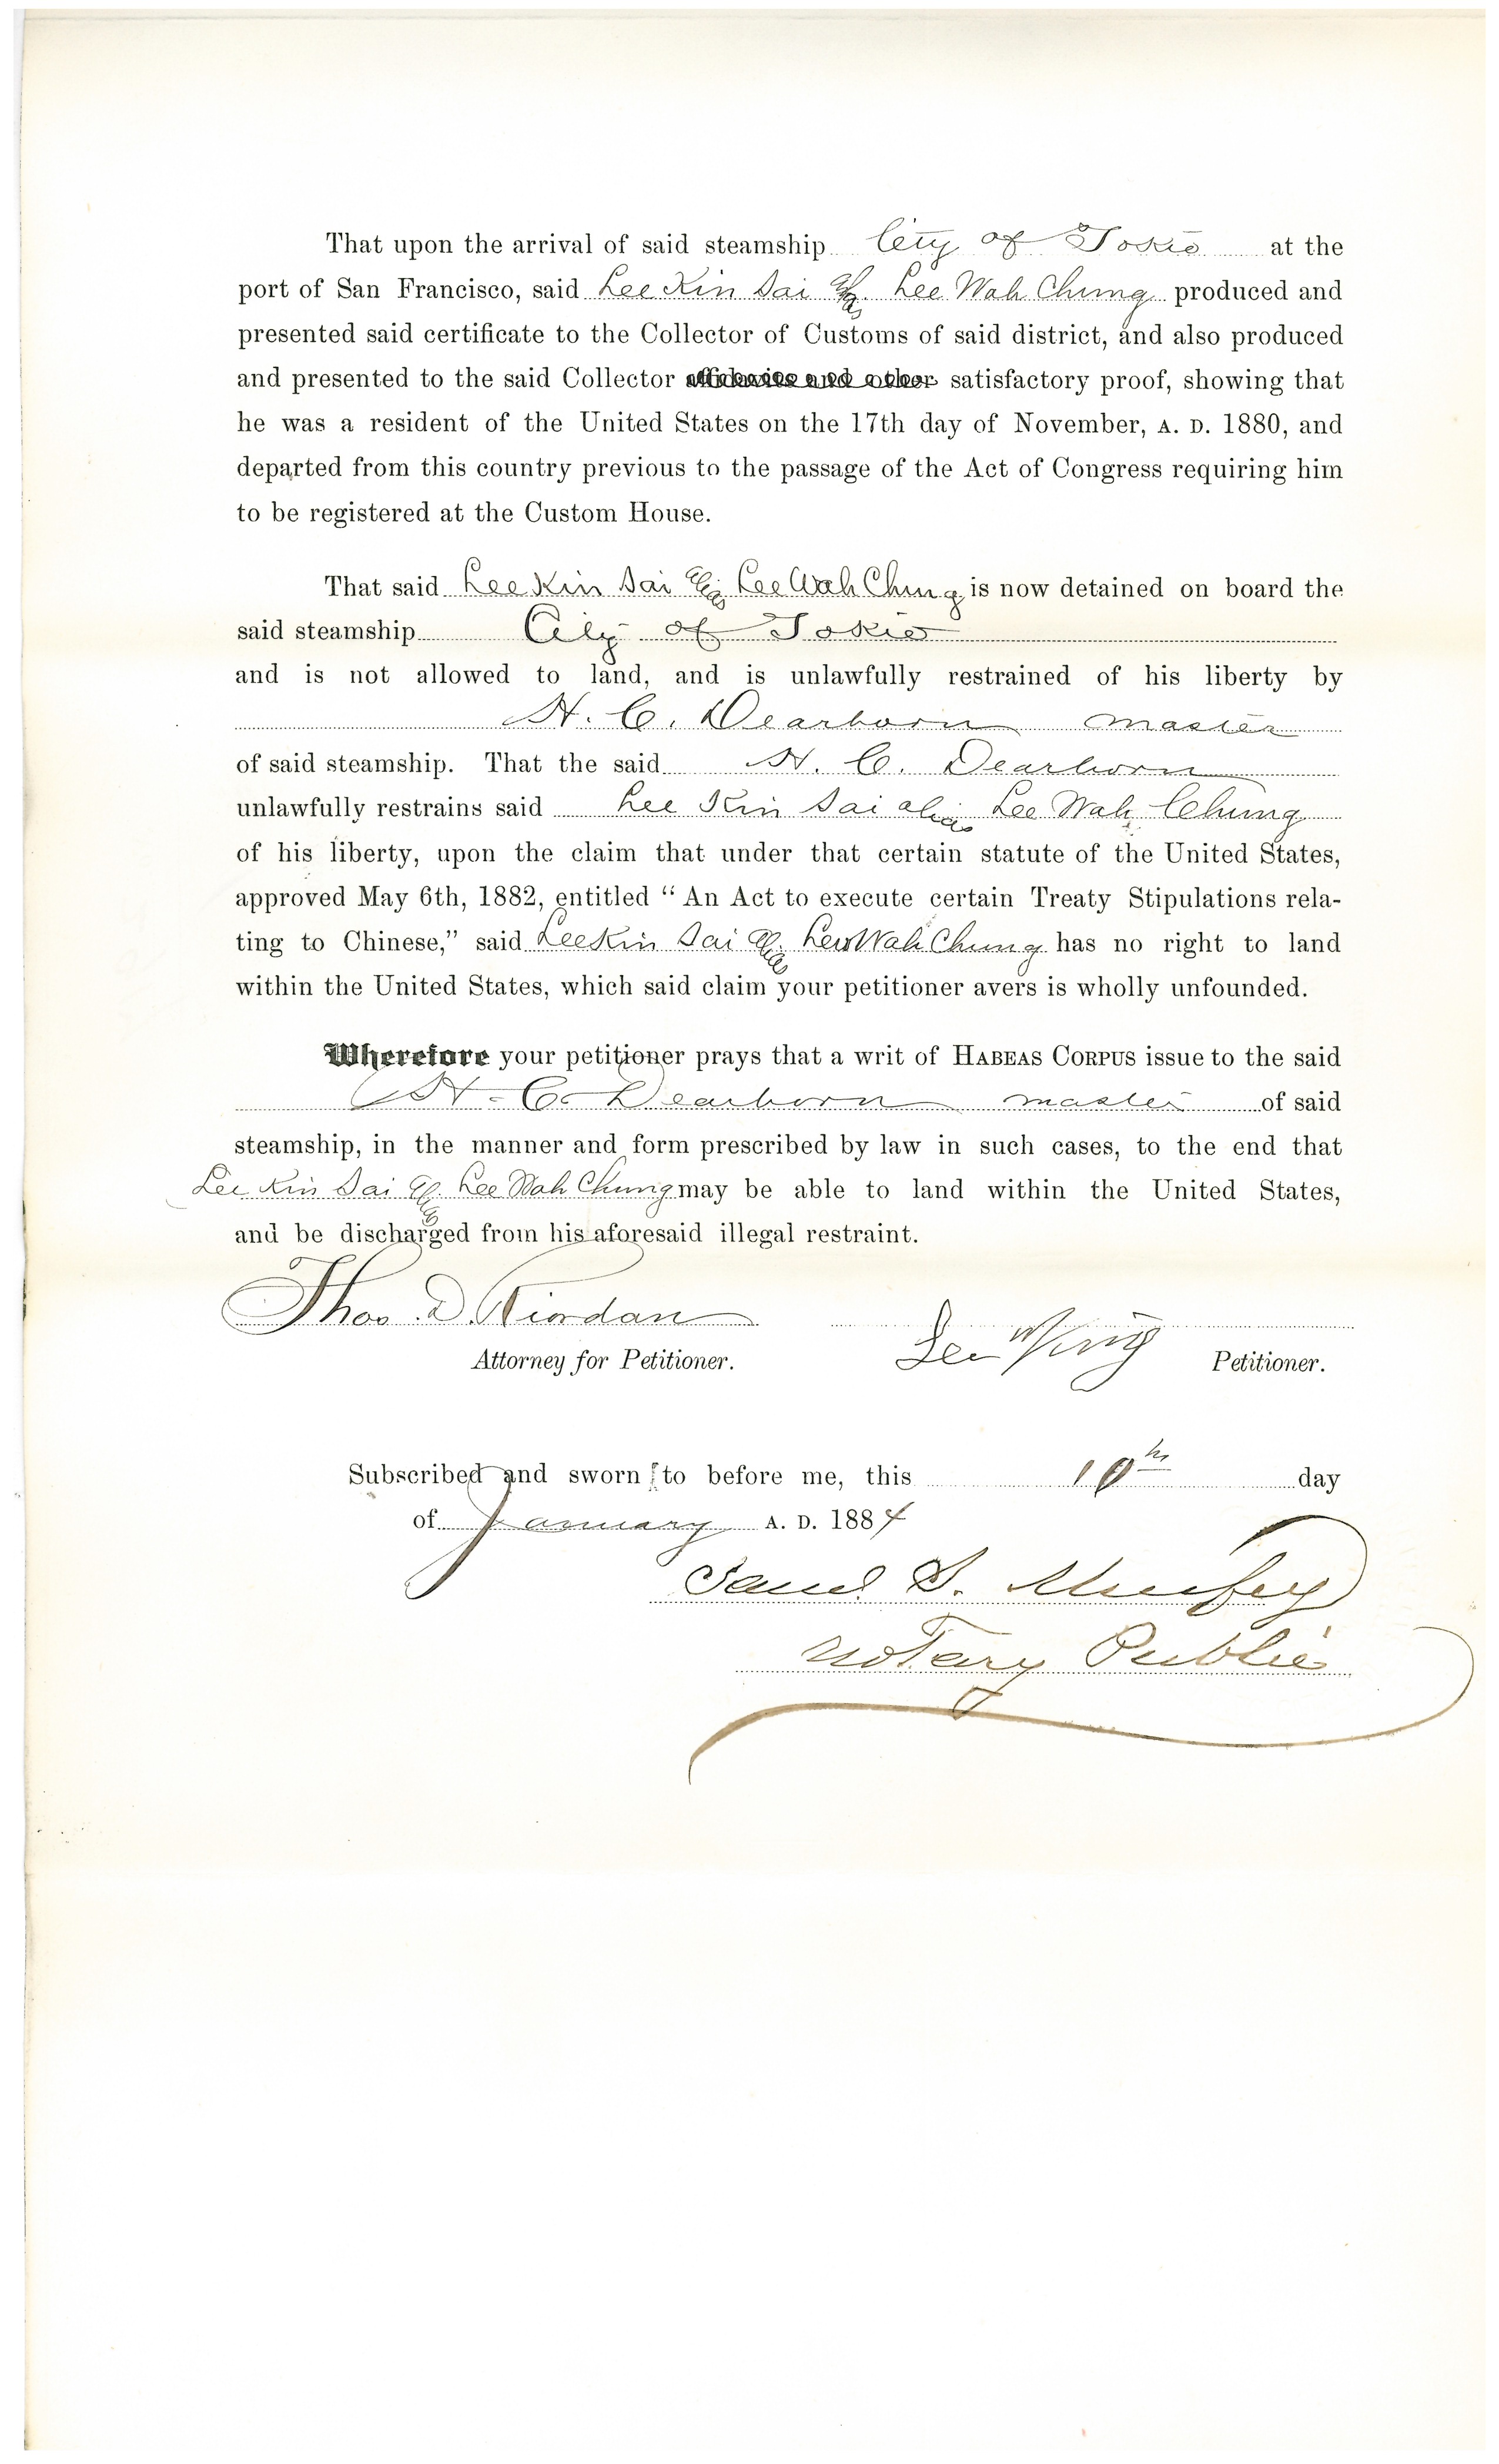 That upon the arrival of said steamship City of Tokio at the
port of San Francisco, said Lee Kin Sai alias Lee Wah Chung produced and
presented said certificate to the Collector of Customs of said district, and also produced
and presented to the said Collector affidavits and other satisfactory proof, showing that
he was a resident of the United States on the 17th day of November, A. D. 1880, and
departed from this country previous to the passage of the Act of Congress requiring him
to be registered at the Custom House.
That said Lee Kin Sai alias Lee Wah Chung is now detained on board the
said steamship City of Tokio
and is not allowed to land, and is unlawfully restrained of his liberty by
H. C. Dearborn master
of said steamship. That the said H. C. Dearborn
unlawfully restrains said Lee Kin Sai alias Lee Wah Chung
of his liberty, upon the claim that under that certain statute of the United States,
approved May 6th, 1882, entitled “An Act to execute certain Treaty Stipulations rela-
ting to Chinese,” said Lee Kin Sai alias Lee Wah Chung has no right to land
within the United States, which said claim your petitioner avers is wholly unfounded.
Wherefore your petitioner prays that a writ of HABEAS CORPUS issue to the said
H. C. Dearborn master of said
steamship, in the manner and form prescribed by law in such cases, to the end that
Lee Kin Sai alias Lee Wah Chung may be able to land within the United States,
and be discharged from his aforesaid illegal restraint.
Thos. D. Riordan
Attorney for Petitioner. Lee King Petitioner.
Subscribed and sworn to before me, this 10th day
of January A. D. 1884
Saml. S. Murfey
Notary Public